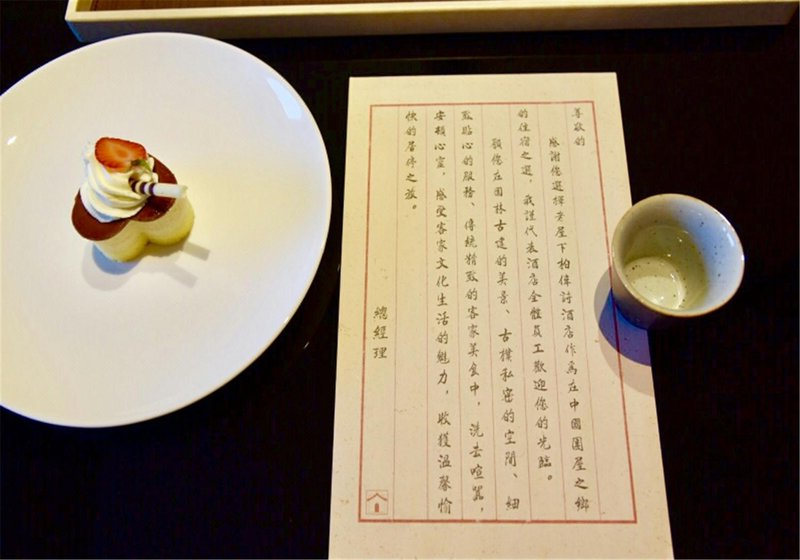 尊敬的
感謝您選擇老屋下柏偉詩酒店作為在中國圍屋之鄉
的住宿之選，我謹代表酒店全體員工歡迎您的光臨。
願您在園林古建的美景、古樸私密的空間、細
致貼心的服務、傳統精致的客家美食中，洗去喧囂，
安頓心靈，感受客家文化生活的魅力，收獲溫馨愉
快的居停之旅。
總經理